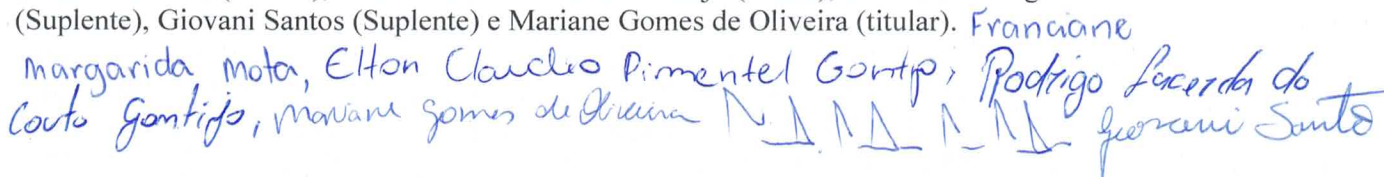 (Suplente), Giovani Santos (Suplente) e Mariane Gomes de Oliveira (titular). Franciane
Margarida Mota, Elton Claudio Pimentel Gontijo, Rodrigo Lacerda do
Couto Gontijo, Mariane Gomes de Oliveira Giovani Santos